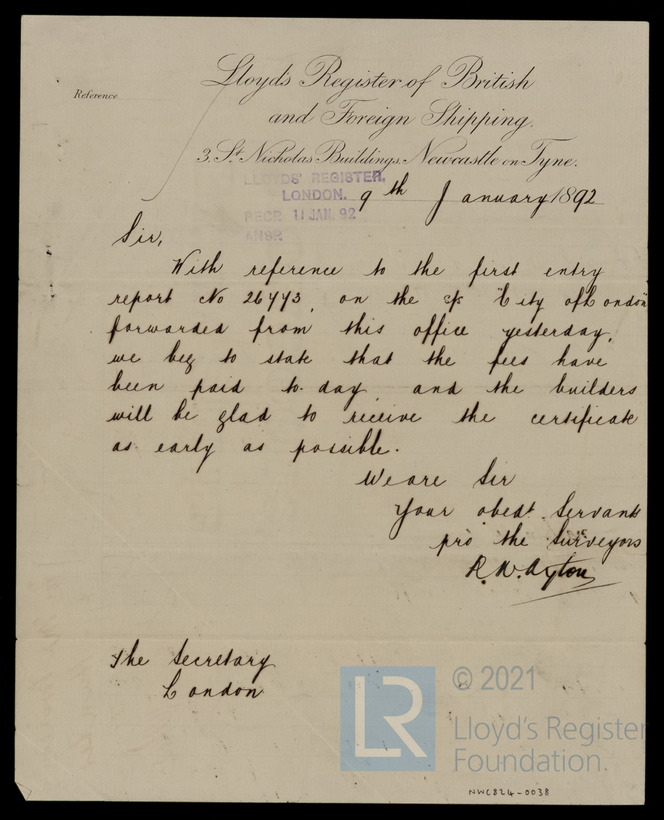 Lloyd's Register of British
Reference
and Foreign Shipping.
3, St Nicholas Buildings, Newcastle on Tyne.
LLOYDS' REGISTER,
LONDON.
RECR 11 JAN. 92
ANSR
9th January 1892
Sir,
With reference to the first entry
report No 26443, on the s/s "City of London"
forwarded from this office yesterday,
we beg to state that the fees have
been paid to-day, and the builders
will be glad to receive the certificate
as early as possible.
We are Sir
Your obedt Servants
pro the Surveyors
R. W. Ayton
The Secretary
London
LR
© 2021
Lloyd's Register
Foundation.
NWC824-0038